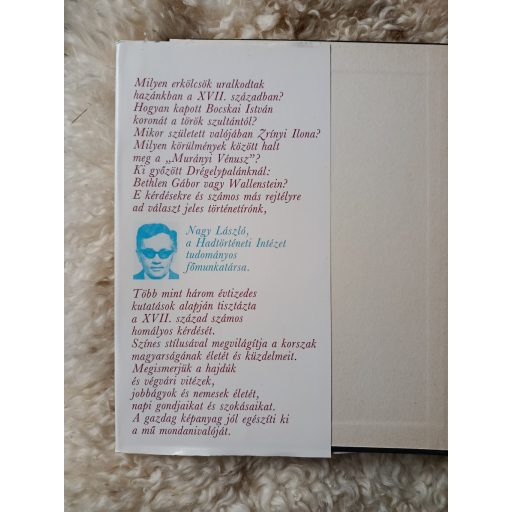 Milyen erkölcsök uralkodtak
hazánkban a XVII. században?
Hogyan kapott Bocskai István
koronát a török szultántól?
Mikor született valójában Zrínyi Ilona?
Milyen körülmények között halt
meg a „Murányi Vénusz”?
Ki győzött Drégelypalánknál:
Bethlen Gábor vagy Wallenstein?
E kérdésekre és számos más rejtélyre
ad választ jeles történetírónk,
Nagy László,
a Hadtörténeti Intézet
tudományos
főmunkatársa.
Több mint három évtizedes
kutatások alapján tisztázta
a XVII. század számos
homályos kérdését.
Színes stílusával megvilágítja a korszak
magyarságának életét és küzdelmeit.
Megismerjük a hajdúk
és végvári vitézek,
jobbágyok és nemesek életét,
napi gondjaikat és szokásaikat.
A gazdag képanyag jól egészíti ki
a mű mondanivalóját.